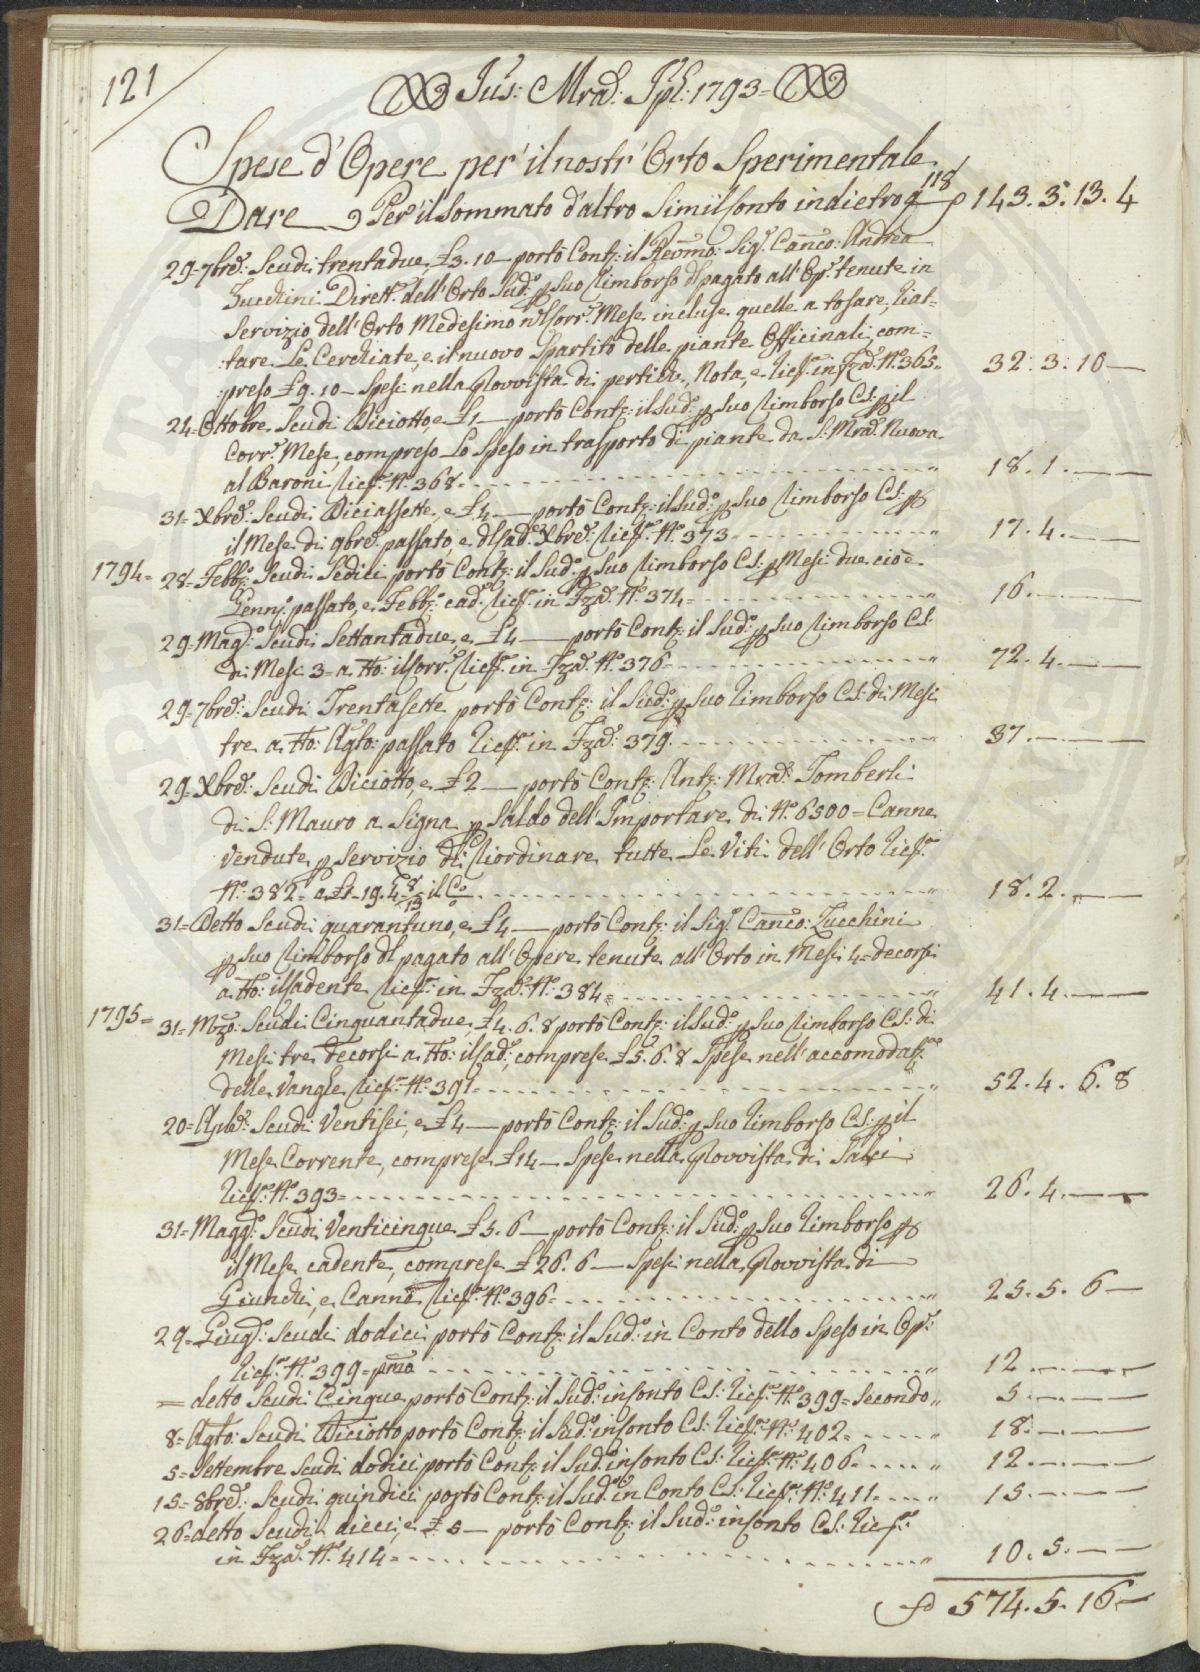 121
Jus: Mrā: Spl: 1793=
Spese d'Opere per il nostr'Orto Sperimentale
Dare Per il Sommato d'altro Simil Conto indietro 118 143. 3. 13. 4
29=7bre: Scudi trentadue, £3.10 portò Contj: il Revmo: Sigr. Canco: Andrea
Zucchini Dirett: dell'Orto Sudo: p suo Rimborso del pagato all'Opre tenute in
Servizio dell'Orto Medesimo nel Corr: Mese incluse quelle a tosare, Rial=
=tare Le Cerchiate, e il nuovo Spartito delle piante Officinali, com=
=preso £9.10 Spesi nella Provvista di pertiche, Nota, e Ricev: in Fza: No: 365. 32. 3. 10
24=Ottobre Scudi Diciotto, e £1 portò Contj: il Sudo: p Suo Rimborso C.S: p il
Corr: Mese, compreso Lo Speso in trasporto di piante da S: Mra: Nuova
al Baroni Ricev: No: 368 18. 1.
31=Xbre: Scudi Diciassette, e £4 portò Contj: il Sudo: p Suo Rimborso C.S: p
il Mese di 9bre: passato, e del Cad: Xbre: Ricev: No: 373 17. 4.
1794= 28=Febbo: Scudi Sedici portò Contj: il Sudo: p Suo Rimborso C.S: p Mesi due cioè
Genno: passato, e Febbo: cad: Ricev: in Fza: No: 374= 16.
29=Mago: Scudi Settantadue, e £4 portò Contj: il Sudo: p suo Rimborso C.S:
di Mesi 3= a tto: il Corr: Ricev: in Fza: No: 376= 72. 4.
29=7bre: Scudi Trentasette portò Contj: il Sudo: p Suo Rimborso C.S: di Mesi
tre a tto: Agto: passato Ricev: in Fza: 379. 37.
29=Xbre: Scudi Diciotto, e £2 portò Contj: Anto: Mra: Tomberli
di S: Mauro a Signa p Saldo dell'Importare di No: 6500= Canne
Vendute p Servizio di Riordinare tutte Le Viti dell'Orto Ricev:
No: 382= a £1.19.4 8/13 il Co/o 18. 2.
31=Detto Scudi quarantuno, e £4 portò Contj: il Sigr. Canco: Zucchini
p suo Rimborso del pagato all'Opere tenute all'Orto in Mesi 4= decorsi
a tto: il Cadente Ricev: in Fza: No: 384= 41. 4.
1795= 31=Mzo: Scudi Cinquantadue £4.6.8 portò Contj: il Sudo: p Suo Rimborso C.S: di
Mesi tre decorsi a tto: il Cad: comprese £5.6.8 Spese nell'accomodatre
delle Vanghe Ricev: No: 391= 52. 4. 6. 8
20=Aple: Scudi Ventisei, e £4 portò Contj: il Sudo: p suo Rimborso C.S: p il
Mese Corrente, comprese £14 Spese nella Provvista di Salci
Ricev: No: 393= 26. 4.
31=Maggo: Scudi Venticinque £5.6 portò Contj: il Sudo: p Suo Rimborso p
il Mese cadente, comprese £26.6 Spesi nella Provvista di
Giunchi, e Canne Ricev: No: 396= 25. 5. 6
29=Giugo: Scudi dodici portò Contj: il Sudo: in Conto dello Speso in Opre:
Ricev: No: 399= pmo 12.
= detto Scudi Cinque portò Contj: il Sudo: in Conto C.S: Ricev: No: 399= Secondo 5.
8=Agto: Scudi Diciotto portò Contj: il Sudo: in Conto C.S: Ricev: No: 402= 18.
5=Settembre Scudi dodici portò Contj: il Sudo: in Conto C.S: Ricev: No: 406 12.
15=8bre: Scudi quindici portò Contj: il Sudo: in Conto C.S: Ricev: No: 411 15.
26=detto Scudi dieci, e £5 portò Contj: il Sudo: in Conto C.S: Ricev:
in Fza: No: 414= 10. 5.
574. 5. 16